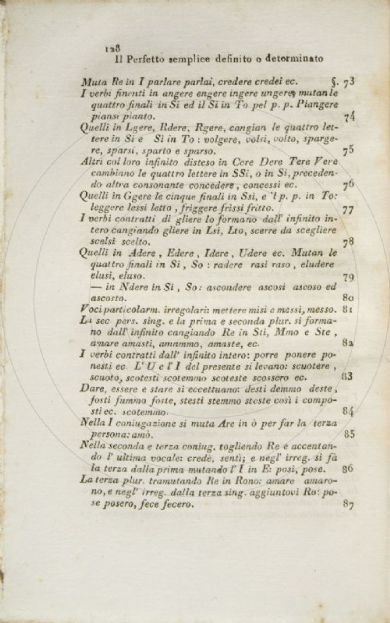 128
Il Perfetto semplice definito o determinato
Muta Re in I parlare parlai, credere credei ec. §. 73
I verbi finenti in angere engere ingere ungere, mutan le
quattro finali in Si ed il Si in To pel p. p. Piangere
piansi pianto. 74
Quelli in Lgere, Rdere, Rgere, cangian le quattro let-
tere in Si e Si in To: volgere, volsi, volto, sparge-
re, sparsi, sparto e sparso. 75
Altri col loro infinito disteso in Cere Dere Tere Vere
cambiano le quattro lettere in SSi, o in Si, preceden-
do altra consonante concedere, concessi ec. 76
Quelli in Ggere le cinque finali in Ssi, e 'l p. p. in To:
leggere lessi letto, friggere frissi fritto. 77
I verbi contratti di gliere lo formano dall' infinito in-
tero cangiando gliere in Lsi, Lto, scerre da scegliere
scelsi scelto. 78
Quelli in Adere, Edere, Idere, Udere ec. Mutan le
quattro finali in Si, So: radere rasi raso, eludere
elusi, eluso. 79
— in Ndere in Si, So: ascondere ascosi ascoso ed
ascosto. 80
Voci particolarm. irregolari: mettere misi e messi, messo. 81
La sec pers. sing. e la prima e seconda plur. si forma-
no dall' infinito cangiando Re in Sti, Mmo e Ste,
amare amasti, amammo, amaste, ec. 82
I verbi contratti dall' infinito intero: porre ponere po-
nesti ec. L' U e l' I del presente si levano: scuotere,
scuoto, scotesti scotemmo scoteste scossero ec. 83
Dare, essere e stare si eccettuano: desti demmo deste,
fosti fummo foste, stesti stemmo steste così i compo-
sti ec. scotemmo. 84
Nella I coniugazione si muta Are in ò per far la terza
persona: amò. 85
Nella seconda e terza coniug. togliendo Re e accentan-
do l' ultima vocale: credè, sentì; e negl' irreg. si fà
la terza dalla prima mutando l' I in E: posi, pose. 86
La terza plur. tramutando Re in Rono: amare amaro-
no, e negl' irreg. dalla terza sing. aggiuntovi Ro: po-
se posero, fece fecero. 87